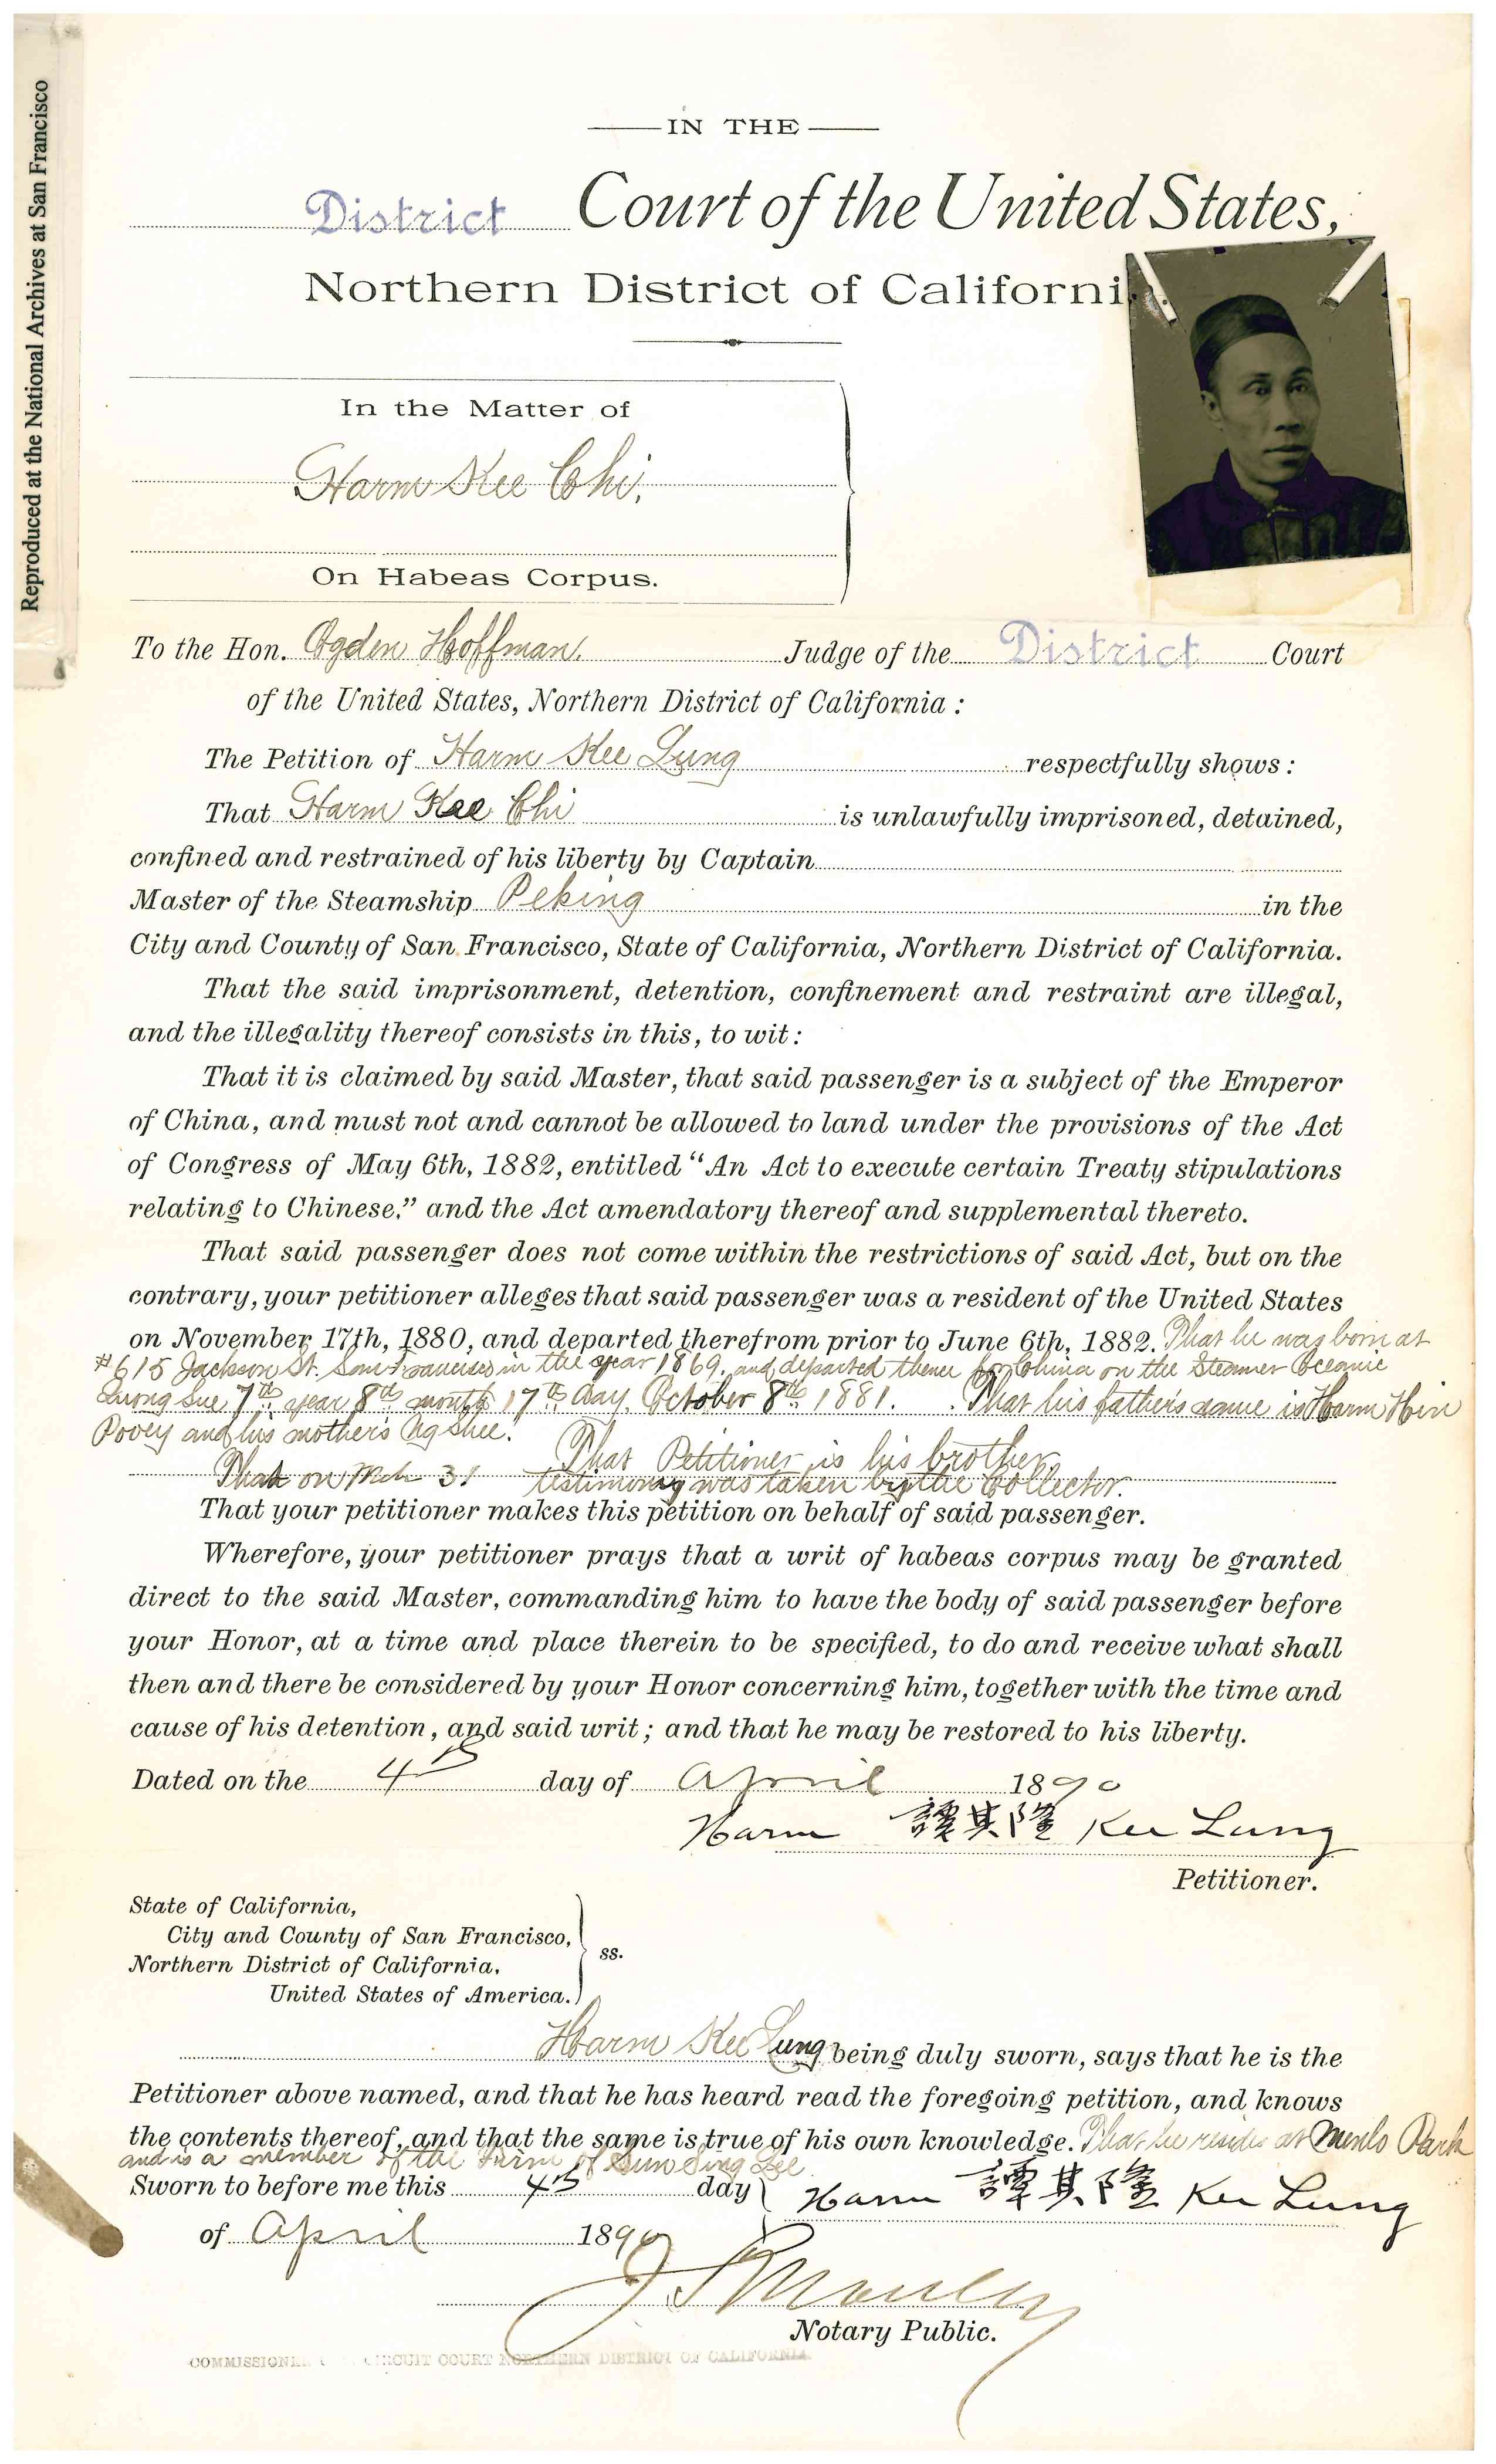 Reproduced at the National Archives at San Francisco
IN THE
District Court of the United States,
Northern District of Californi
In the Matter of
Harm Kee Chi.
On Habeas Corpus.
To the Hon. Ogden Hoffman. Judge of the District Court
of the United States, Northern District of California :
The Petition of Harm Kee Lung respectfully shows :
That Harm Kee Chi is unlawfully imprisoned, detained,
confined and restrained of his liberty by Captain
Master of the Steamship Peking in the
City and County of San Francisco, State of California, Northern District of California.
That the said imprisonment, detention, confinement and restraint are illegal,
and the illegality thereof consists in this, to wit :
That it is claimed by said Master, that said passenger is a subject of the Emperor
of China, and must not and cannot be allowed to land under the provisions of the Act
of Congress of May 6th, 1882, entitled “An Act to execute certain Treaty stipulations
relating to Chinese,” and the Act amendatory thereof and supplemental thereto.
That said passenger does not come within the restrictions of said Act, but on the
contrary, your petitioner alleges that said passenger was a resident of the United States
on November 17th, 1880, and departed therefrom prior to June 6th, 1882. That he was born at
#615 Jackson St. San Francisco in the year 1869. and departed thence for China on the Steamer Oceanic
Quong Sue 7th year 8th month 17th day. October 8th 1881. That his father's name is Harm Hin
Povey and his mother's Ng Shee. That Petitioner is his brother.
That on Mch 31 testimony was taken by the Collector.
That your petitioner makes this petition on behalf of said passenger.
Wherefore, your petitioner prays that a writ of habeas corpus may be granted
direct to the said Master, commanding him to have the body of said passenger before
your Honor, at a time and place therein to be specified, to do and receive what shall
then and there be considered by your Honor concerning him, together with the time and
cause of his detention, and said writ ; and that he may be restored to his liberty.
Dated on the 4th day of April 1890
Harm 譚其隆 Kee Lung
Petitioner.
State of California,
City and County of San Francisco,
Northern District of California,
United States of America. ss.
Harm Kee Lung being duly sworn, says that he is the
Petitioner above named, and that he has heard read the foregoing petition, and knows
the contents thereof, and that the same is true of his own knowledge. That he resides at Menlo Park
and is a member of the Firm of Sun Sing Lee
Sworn to before me this 4th day Harm 譚其隆 Kee Lung
of April 1890
Notary Public.
CIRCUIT COURT NORTHERN DISTRICT OF CALIFORNIA